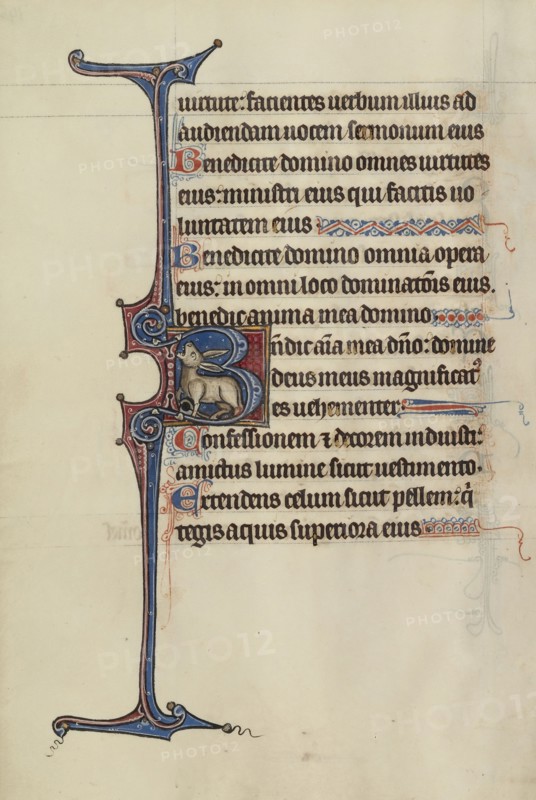 uirtute: facientes uerbum illius ad
audiendam uocem sermonum eius
Benedicite domino omnes uirtutes
eius: ministri eius qui facitis uo
luntatem eius
Benedicite domino omnia opera
eius: in omni loco dominatōis eius.
benedic anima mea domino.
Bn̄dic aīa mea dn̄o: domine
deus meus magnificatꝰ
es uehementer.
Confessionem ⁊ decorem induisti:
amictus lumine sicut uestimento.
Extendens celum sicut pellem: q̄
tegis aquis superiora eius
PHOTO12